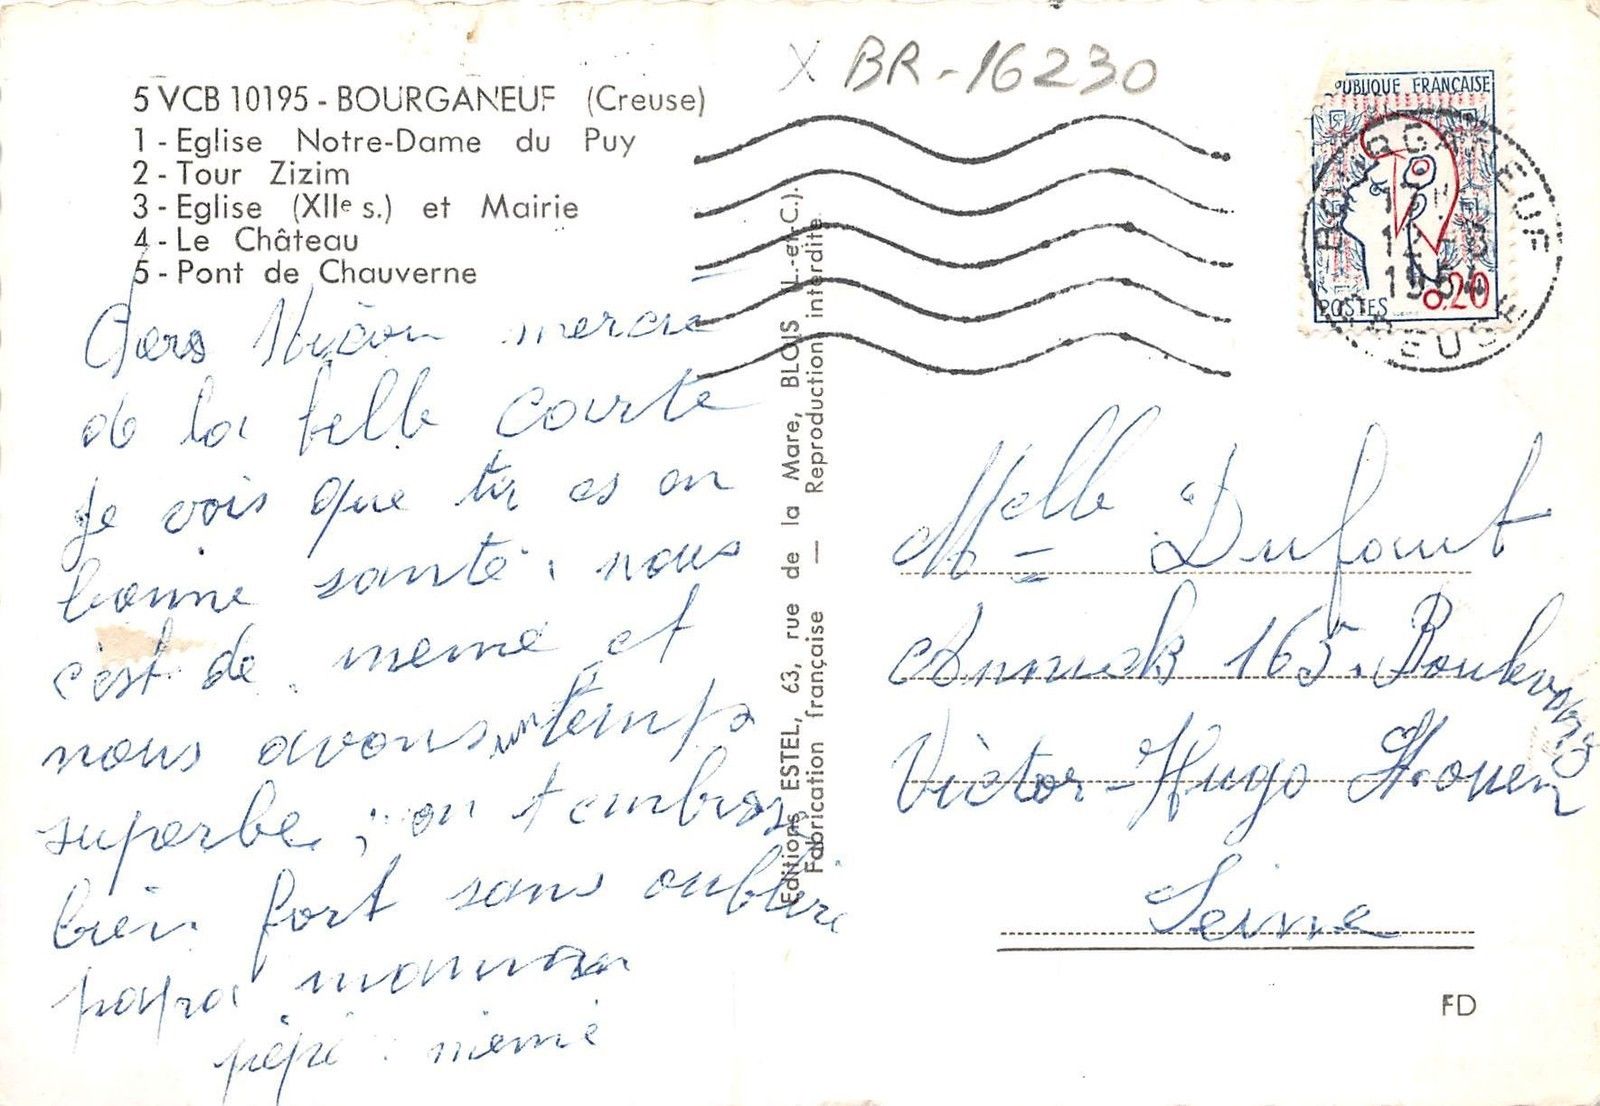 X BR-16230
5 VCB 10195 - BOURGANEUF (Creuse)
1 - Eglise Notre-Dame du Puy
2 - Tour Zizim
3 - Eglise (XIIe s.) et Mairie
4 - Le Château
5 - Pont de Chauverne
merci
de la belle carte
je vois que tu es en
bonne santé. nous
c'est de meme et
nous avons un temps
superbe, on t embrasse
bien fort sans oublier
papa maman
pépé. mémé
Editions ESTEL, 63, rue de la Mare, BLOIS (L.-et-C.).
Fabrication française — Reproduction interdite
RÉPUBLIQUE FRANÇAISE
POSTES 0.20
BOURGANEUF
CREUSE
Melle Dufout
Annick 165. Boulevard
Victor-Hugo St. ouen
Seine
FD